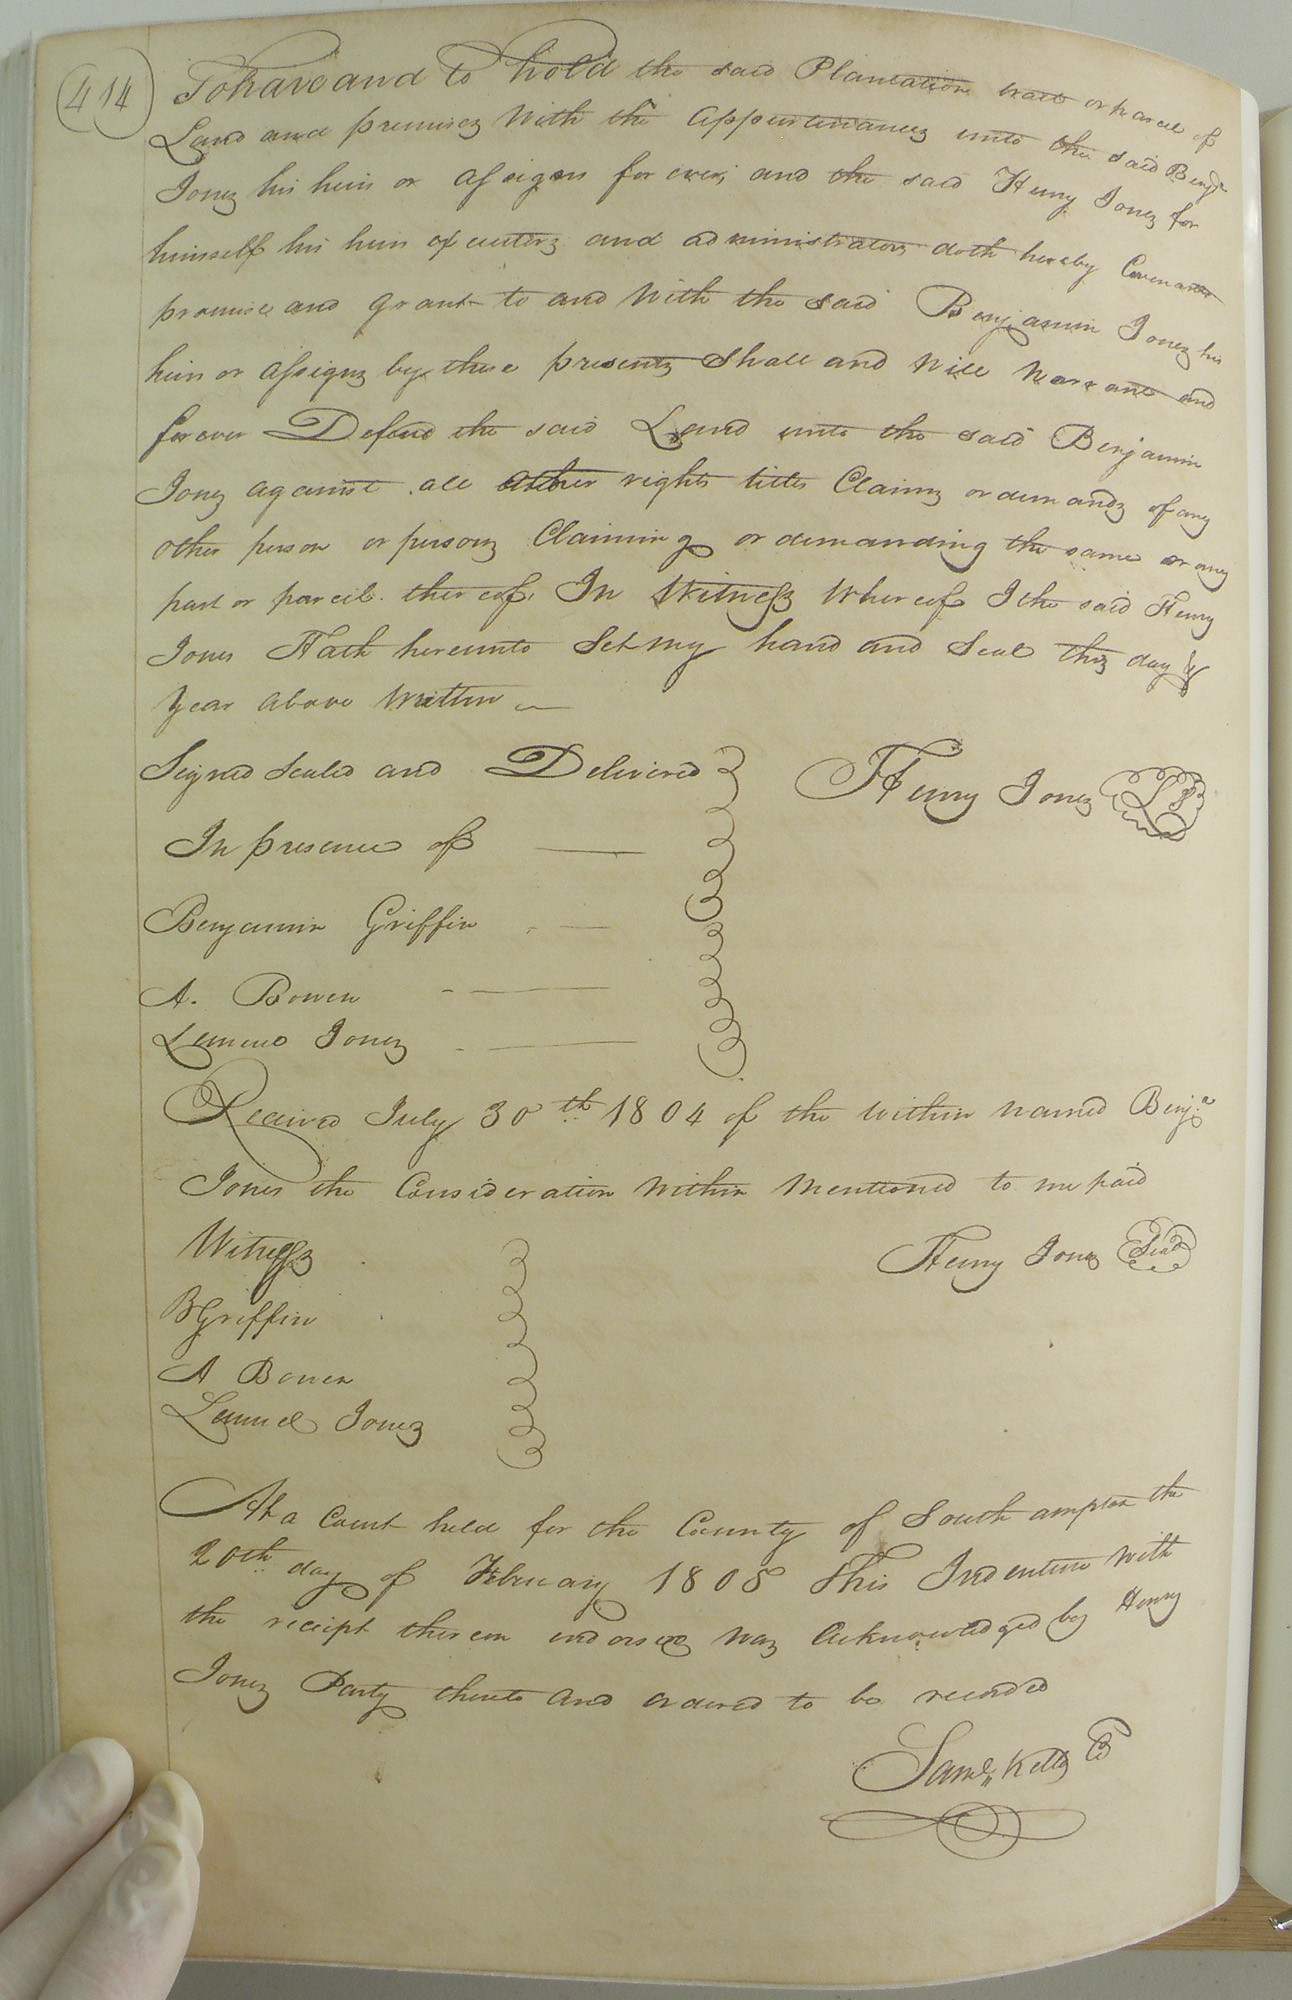 414
To have and to hold the said Plantation tract or parcel of
Land and premises With the appurtenances unto the said Benjn
Jones his heirs or assigns for ever, and the said Henry Jones for
himself his heirs executors and administrators doth hereby Covenant
promise and grant to and With the said Benjamin Jones his
heirs or assigns by these presents Shall and Will Warrant and
forever Defend the said Land unto the said Benjamin
Jones against all other rights titles Claims or demands of any
other person or persons Claiming or demanding the same or any
part or parcel thereof, In Witness Whereof I the said Henry
Jones Hath hereunto Set my hand and Seal this day &
year above Written
Signed Sealed and Delivered Henry Jones LS
In presence of
Benjamin Griffin
A. Bowen
Lemuel Jones
Received July 30th 1804 of the within named Benjn
Jones the Consideration Within Mentioned to me paid
Witness Henry Jones Seal
B Griffin
A Bowen
Lemuel Jones
At a Court held for the County of Southampton the
20th day of February 1808 This Indenture With
the receipt thereon endorsed was acknowledged by Henry
Jones Party thereto and ordered to be recorded
Saml. Kello